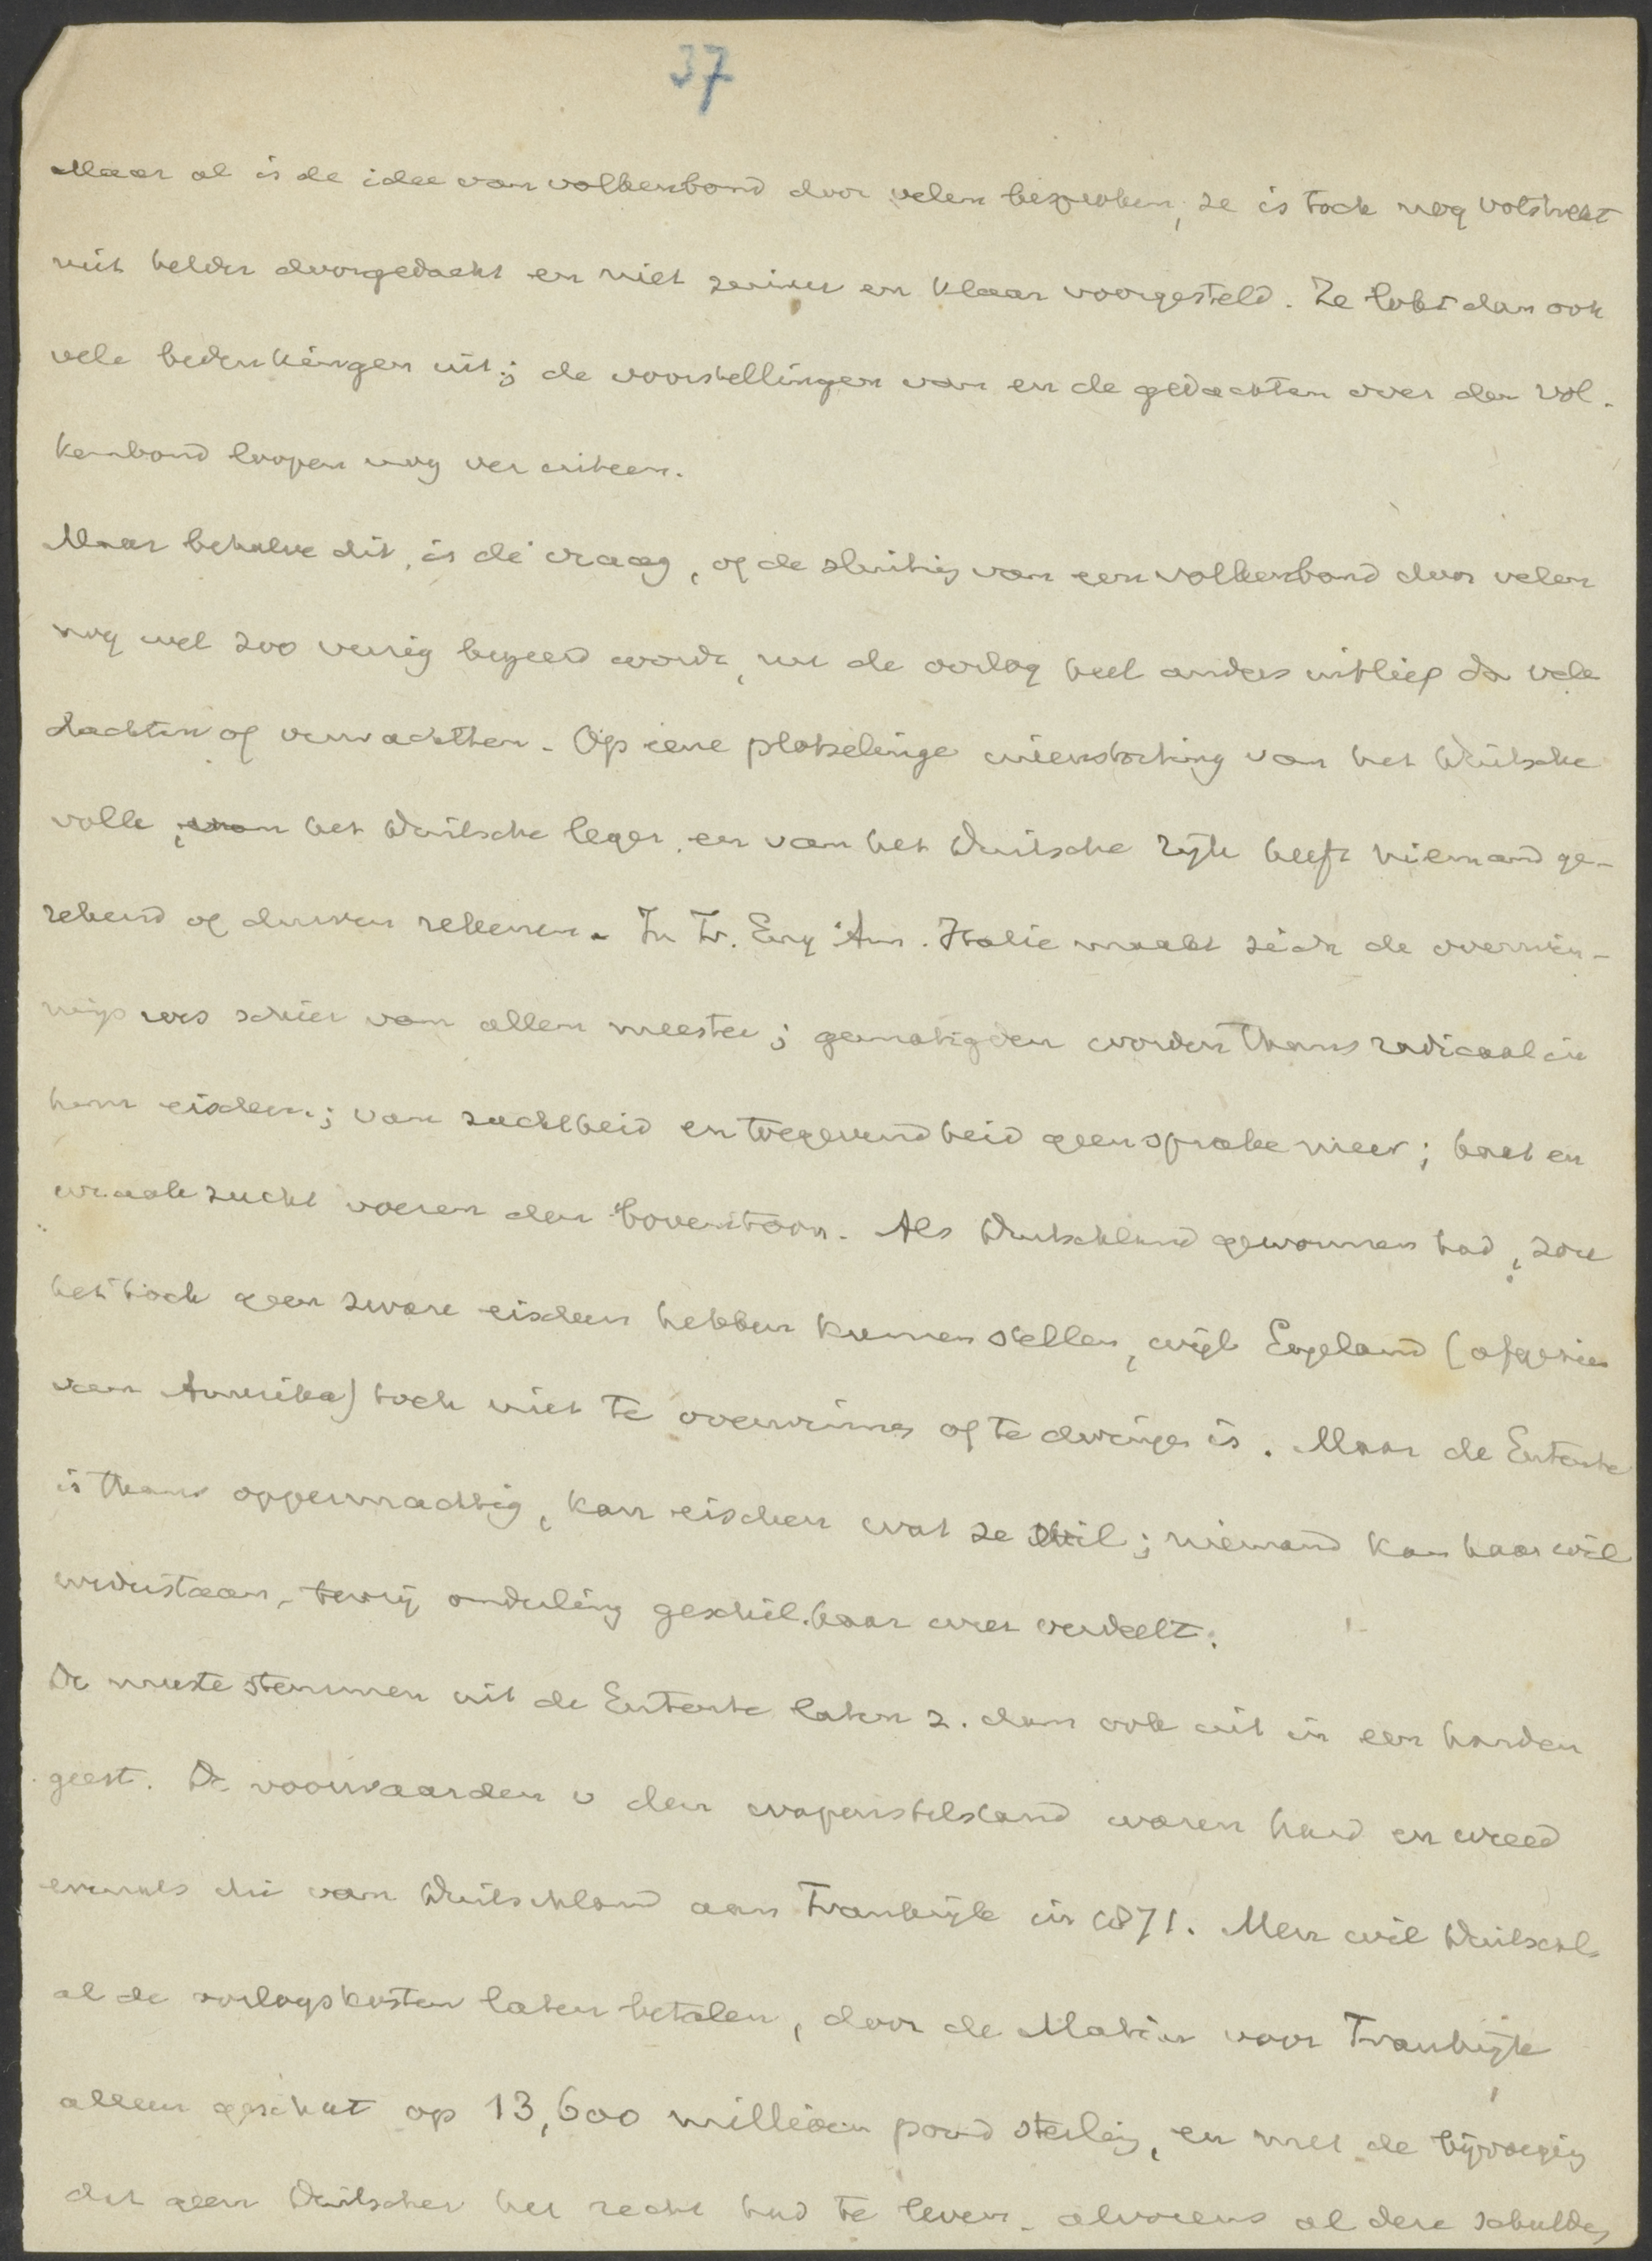 37
Maar al is de idee van volkenbond door velen besproken, ze is toch nog volstrekt
niet helder doorgedacht en niet zuiver en klaar voorgesteld. Ze lokt dan ook
vele bedenkingen uit; de voorstellingen van en de gedachten over den vol-
kenbond loopen nog ver uiteen.
Maar behalve dit, is de vraag, of de sluiting van een volkenbond door velen
nog wel zoo vurig begeerd wordt, nu de oorlog heel anders uitliep dan velen
dachten of verwachtten. Op eene plotselinge ineenstorting van het Duitsche
volk, van het Duitsche leger, en van het Duitsche rijk heeft niemand ge-
rekend of durven rekenen. In Fr. Eng. Am. Italie maakt zich de overwin-
nings roes schier van allen meester; gematigden worden thans radicaal in
hun eischen; van zachtheid en toegevendheid geen sprake meer; haat en
wraakzucht voeren den boventoon. Als Duitschland gewonnen had, zou
het toch geen zware eischen hebben kunnen stellen, wijl Engeland (afgezien
van Amerika) toch niet te overwinnen of te dwingen is. Maar de Entente
is thans oppermachtig, kan eischen wat ze wil; niemand kan haar wil
wederstaan, tenzij onderling geschil haar weer verdeelt.
De meeste stemmen uit de Entente laten z. dan ook uit in een harden
geest. De voorwaarden v den wapenstilstand waren hard en wreed
evenals die van Duitschland aan Frankrijk in 1871. Men wil Duitschl.
al de oorlogskosten laten betalen, door de Matin voor Frankrijk
alleen geschat op 13,600 millioen pond sterling, en met de bijvoeging
dat geen Duitscher het recht had te leven, alvorens al deze schulden